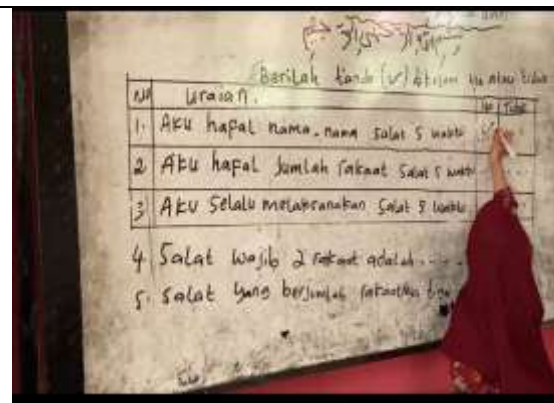 Berilah tanda (✓) dikolom ya atau tidak
No Uraian. Ya Tidak
1. Aku hapal nama-nama salat 5 waktu
2 Aku hapal Jumlah rakaat salat 5 waktu
3 Aku Selalu melaksanakan salat 5 waktu
4 Salat wajib 2 rakaat adalah ....
5. Salat yang berjumlah rakaatnya